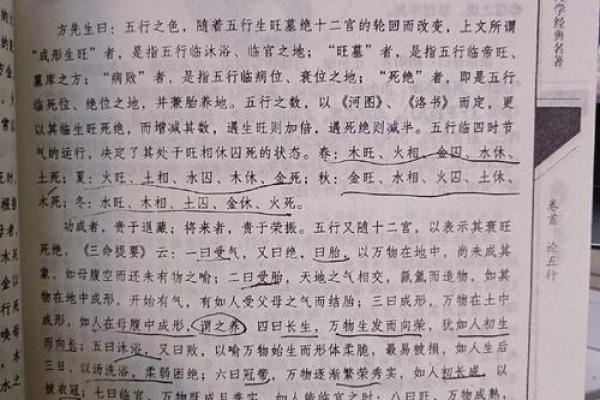 方先生曰：五行之色，随着五行生旺墓绝十二宫的轮回而改变，上文所谓
“成形生旺”者，是指五行临沐浴、临官之地；“旺墓”者，是指五行临帝旺、
墓库之方；“病败”者，是指五行临病位、衰位之地；“死绝”者，即是五行
临死位、绝位之地，并兼胎养地。五行之数，以《河图》、《洛书》而定，更
以其临生旺死绝，而增减其数，遇生旺则加倍，遇死绝则减半。五行临四时节
气的运行，决定了其处于旺相休囚死的状态。春：木旺、火相、金囚、水休、
土死；夏：火旺、土相、水囚、木休、金死；秋：金旺、水相、火囚、土休、
木死；冬：水旺、木相、土囚、金休、火死。
功成者，贵于退藏；将来者，贵于荣振。五行又随十二宫，以表示其衰旺
死绝，《三命提要》云：一曰受气，又曰绝，曰胎，以万物在地中，尚未成其
象，如母腹空而还未有物之喻；二曰受胎，天地之气相交，氤氲而造物，如其
物在地中成形，开始有气，有如人受父母之气而结胎；三曰成形，万物在土中
成形，如人在母腹中成形，谓之养；四曰长生，万物生发而向荣，犹如人初生
而向长；五曰沐浴，又曰败，以喻万物始生而形体柔脆，最易被损，如人生后
三日，以汤洗浴，柔弱困绝；六曰冠带，万物逐渐繁荣秀实，如人初长成，以
被衣冠；七曰临官，万物既成且秀实，如人能临官之时；八曰旺，万物成熟，
学经典名著
卷首 论五行